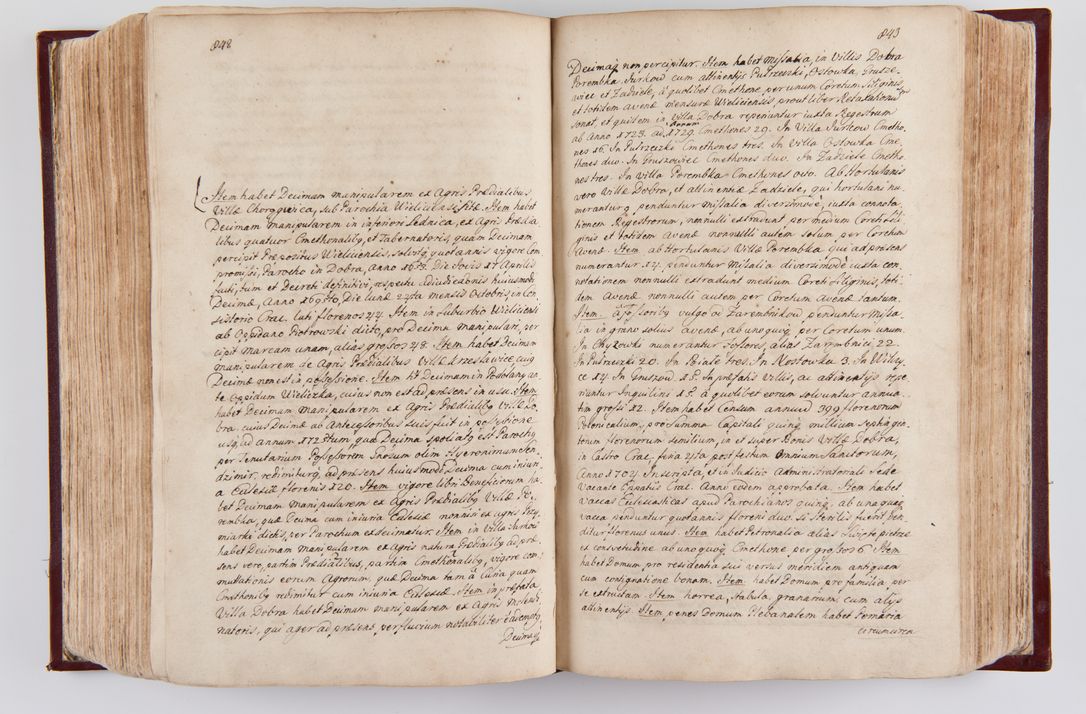 848
Item habet Decimam manipularem ex Agris Prædialibus
Villæ Chorągwica, sub Parochia Wieliciensi sitæ. Item habet
Decimam manipularem in inferiori Lednica, ex Agris Præda
libus quatuor Cmethonalibq, et Tabernatoris, quam Decimam
percipit Præpositus Wieliciensis, solvitq quotannis vigore Com
promissi, Parocho in Dobra, Anno Die Jovis 17 Aprilis
facti, tum et Decreti definitivi, respectu adiudicationis huiusmodi
Decimæ, Anno Die Lunæ 22da mensis Octobris, in Con
sistorio Crac. lati florenos 24. Item in Suburbio Wieliciensi
ab Oppidano Piotrowski dicto, pro Decima manipulari, per
cipit marcam unam, alias grossos 48. Item habet Decimam
manipularem de Agris Prædialibus Villæ Krzesławice cuiq
Decimæ non est in possessione. Item ht Decimam in Posolany an
te Oppidum Wieliczka, cuius non est ad præsens in usu. Item
habet Decimam manipularem ex Agris Prædialibq Villæ Do,
bra, cuius Decimæ ab Antecessoribus suis fuit in possessione
usq ad annum 172 tum, qua Decima spoliatq est Parochq
per Tenutarium Possessorem Gnosum olim Hyeronimum Sen
dzimir, redimiturq ad præsens huiusmodi Decima cum iniuri
a Ecclesiæ florenis 120. Item vigore libri Beneficiorum ha
bet Decimam manipularem ex Agris Prædialibq Villæ Po,
rembka, quæ Decima cum iniuria Ecclesiæ nonnisi ex agris Przy
miarki dictis, per Parochum exdecimatur. Item in Villa Jurkow
habet Decimam manipularem ex Agris natura Prædialibq ad præ
sens vero, partim Prædialibus, partim Cmethonalibq, vigore com
mutationis eorum Agrorum, quæ Decima tam à Curia quam
Cmethonibq redimitur cum iniuria Ecclesiæ. Item in præfata
Villa Dobra habet Decimam manipularem ex Agris Molendi
natoris, qui ager ad præsens per fluvium notabiliter
Decimaq
843
Decimaq non percipitur. Item habet Missalia, in Villis Dobra
Porembka Jurkow cum attinentijs Putrzeszki, Ostowka, Gruszo-
wiec et Zadziele, à quolibet Cmethone, per unum Coretum Siliginis
et totidem avenæ mensuræ Wieliciensis, prout liber Retaxationum
sonat, et quidem in Villa Dobra reperiuntur iuxta Regestrum
ab Anno 1723. ad Annum 1729. Cmethones 29. In Villa Jurkow Cmetho-
nes 16. In Putrzeczki Cmethones tres. In Villa Ostowka Cme,
thones duo. In Gruszowiec Cmethones duo. In Zadziele Cmetho,
nes tres. In Villa Porembka Cmethones octo. Ab Hortulanis
vero Villæ Dobra, et attinentiæ Zadziele, qui hortulani nu,
merantur penduntur missalia diversimodè, iuxta connota,
tionem Regestrorum, nonnulli extradunt per medium Coreti sili
ginis et totidem Avenæ nonnulli autem solum per Coretum
Avenæ. Item ab Hortulanis Villæ Porembka qui ad præsens
numerantur 14. penduntur Missalia diversimodè iuxta con,
notationem nonnulli extradunt medium Coreti siliginis, toti,
dem Avenæ nonnulli autem per Coretum Avenæ tantum.
Item à Zosloribq vulgo ad Zarembnikow penduntur Missa,
lia in grano solius avenæ, ab unoquoq per Coretum unum.
In Chyzowki numerantur Zoslores, alias Zarembnici 22.
In Putrzeczki 20. In Biale tres. In Rostowka 3. In Wilczy,
ce 14. In Gruszow. 15. In præfatis Villis, ac attinentijs repe
riuntur Inquilini 15. à quolibet eorum solvuntur annua,
tim grossi 12. Item habet Censum annuum 399 florenorum
Polonicalium, pro summa Capitali quinq millium septingen,
torum florenorum similium, in et super Bonis Villæ Dobra,
in Castro Crac. feria 4ta post festum Omnium Sanctorum,
Anno 1704. Inscripta, et in Judicio Administratorali sede
vacante Eppatus Crac. Anno eodem approbata. Item habet
vaccas Ecclesiasticas apud Parochianos quinq, ab una quaq
vacca penduntur quotannis floreni duo. si sterilis fuerit pen,
ditur florenus unus. Item habet Petronalia alias Swięto pietrze
ex consvetudine ab unoquoq Cmethone per grossos 6. Item
habet Domum pro residentia sui versus meridiem antiquam
cum contignatione bonam. Item habet Domum pro familia, per
se extructam. Item horrea, stabula, granarium, cum alijs
attinentijs. Item penes Domum Plebanalem habet Pomaria
circumcirca